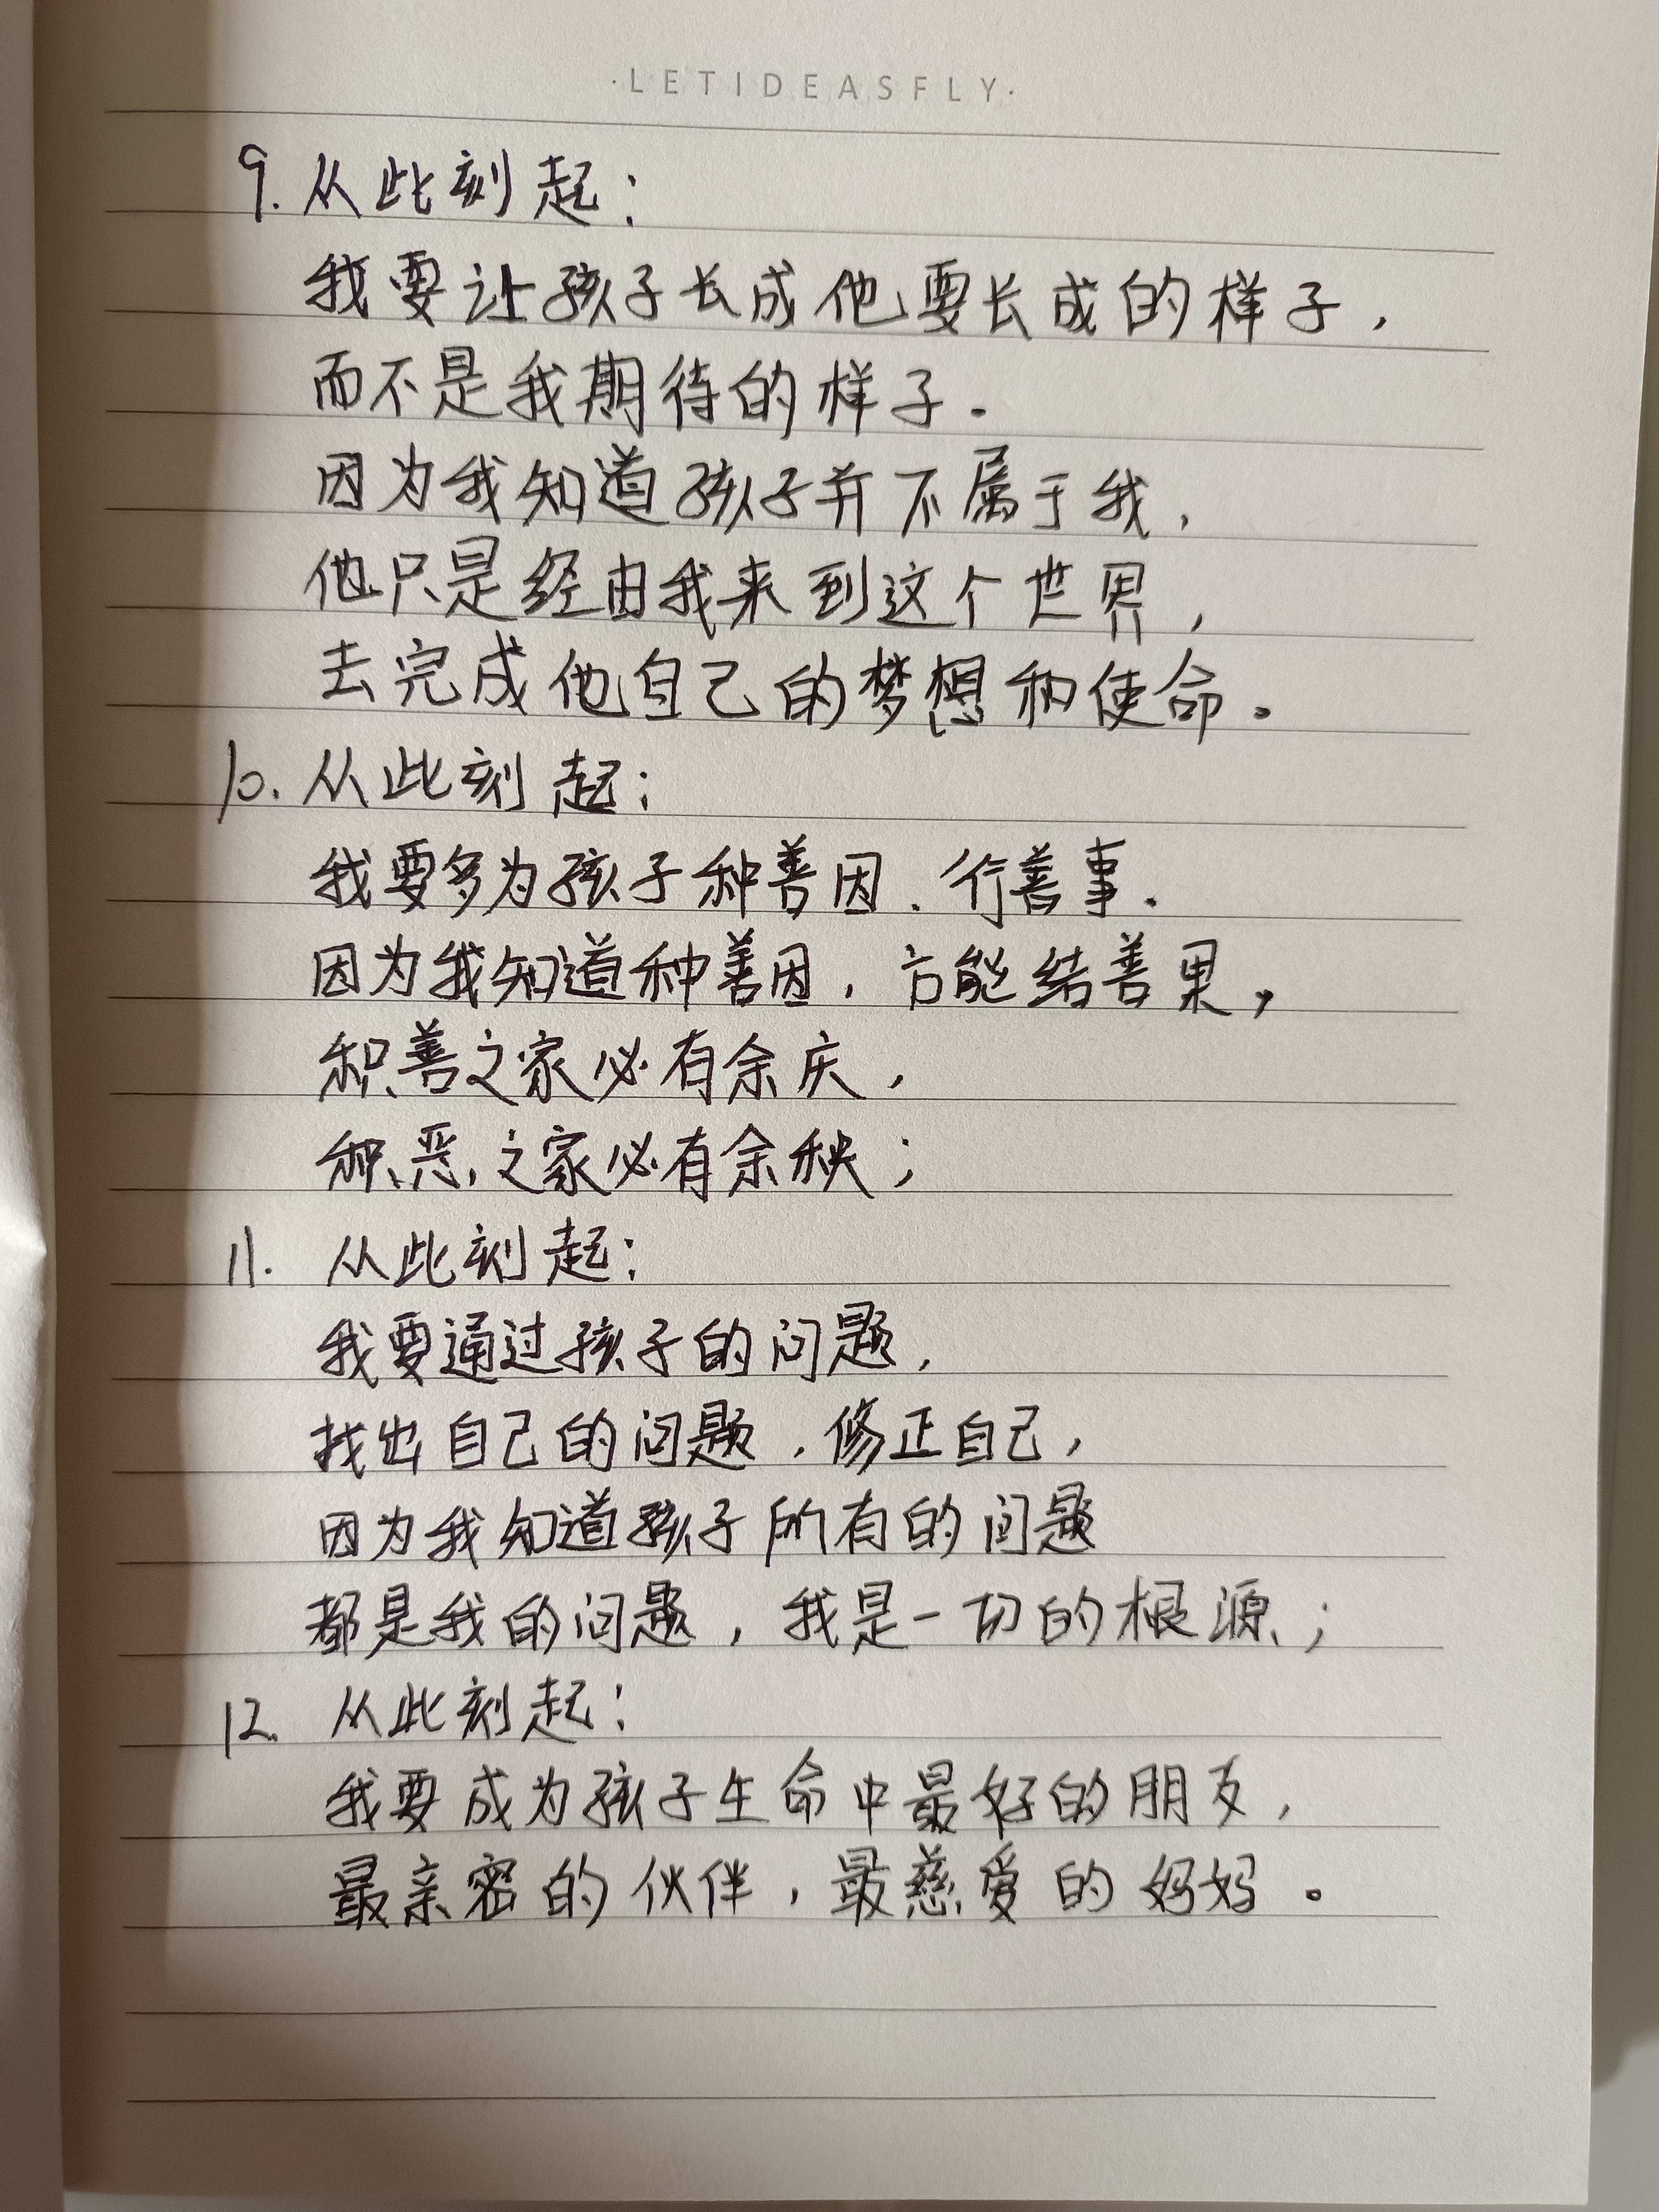 ·LETIDEASFLY·
9. 从此刻起：
我要让孩子长成他要长成的样子，
而不是我期待的样子。
因为我知道孩子并不属于我，
他只是经由我来到这个世界，
去完成他自己的梦想和使命。
10. 从此刻起：
我要多为孩子种善因、行善事.
因为我知道种善因，方能结善果，
积善之家必有余庆，
积恶之家必有余秧；
11. 从此刻起：
我要通过孩子的问题，
找出自己的问题，修正自己，
因为我知道孩子所有的问题
都是我的问题，我是一切的根源；
12. 从此刻起：
我要成为孩子生命中最好的朋友，
最亲密的伙伴，最慈爱的妈妈。